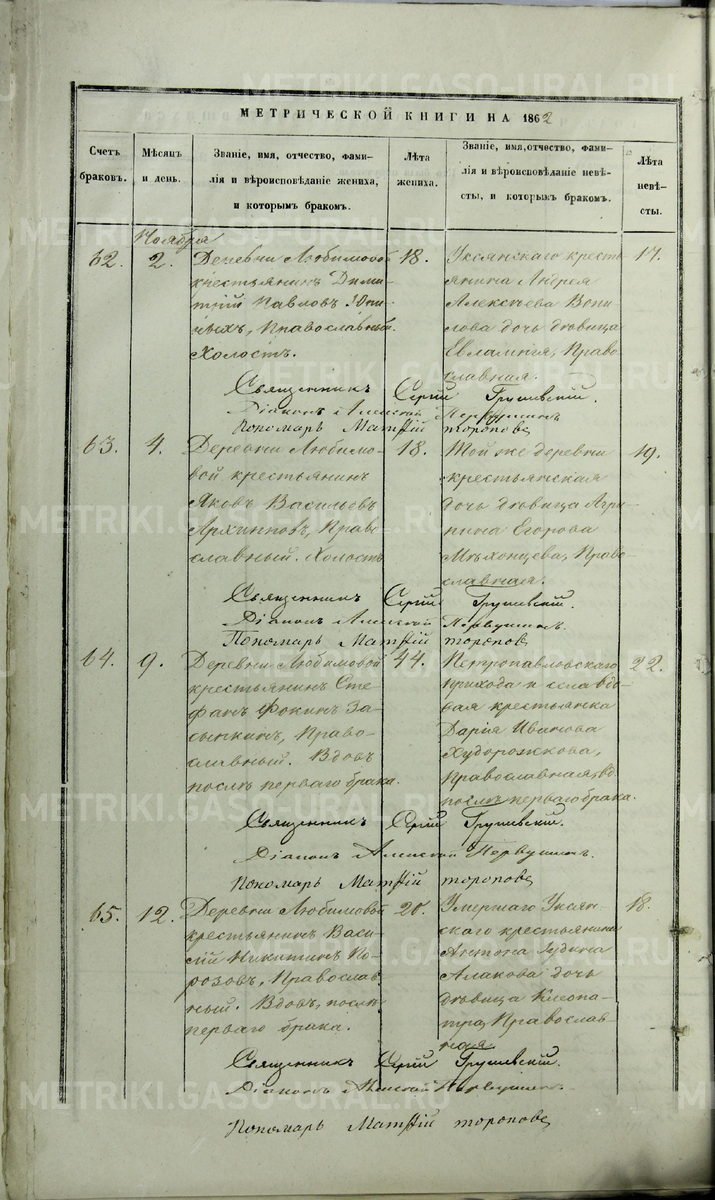 МЕТРИЧЕСКОЙ КНИГИ НА 1862
Счетъ браковъ.
Мѣсяцъ и день.
Званіе, имя, отчество, фами-
лія и вѣроисповѣданіе жениха,
и которымъ бракомъ.
Лѣта жениха.
Званіе, имя, отчество, фами-
лія и вѣроисповѣданіе невѣ-
сты, и которымъ бракомъ.
Лѣта невѣ-
сты.
Ноября
62. 2.
Деревни Любимовой
крестьянинъ Дими-
трій Павловъ
Православный.
Холостъ.
18.
Уксянскаго кресть-
янина Андрея
Алексѣева Вопи-
лова дочь дѣвица
Евлампія, Право-
славная.
17.
Священникъ Сергій Грушевскій.
Діаконъ Алексѣй Первушинъ
Пономарь Матѳій Топоровъ
63. 4.
Деревни Любимо-
вой крестьянинъ
Яковъ Васильевъ
Архиповъ, Право-
славный. Холостъ
18.
Той же деревни
крестьянская
дочь дѣвица Агри-
пина Егорова
Мѣхонцева, Право-
славная.
19.
Священникъ Сергій Грушевскій.
Діаконъ Алексѣй Первушинъ.
Пономарь Матѳій Топоровъ
64. 9.
Деревни Любимовой
крестьянинъ Сте-
фанъ Фокинъ За-
сыпкинъ, Право-
славный. Вдовъ
послѣ перваго брака.
44.
Петропавловскаго
прихода и села вдо-
вая крестьянка
Дарія Иванова
Худорожкова,
Православная, вд.
послѣ перваго брака.
22.
Священникъ Сергій Грушевскій.
Діаконъ Алексѣй Первушинъ.
Пономарь Матѳій Топоровъ
65. 12.
Деревни Любимовой
крестьянинъ Васи-
лій Никитинъ По-
розовъ, Православ-
ный. Вдовъ, послѣ
перваго брака.
20.
Умершаго Уксян-
скаго крестьянина
Антона
Алакова дочь
дѣвица Клеопа-
тра, Православ-
ная.
18.
Священникъ Сергій Грушевскій.
Діаконъ Алексѣй Первушинъ.
Пономарь Матѳій Топоровъ
METRIKI.GASO-URAL.RU